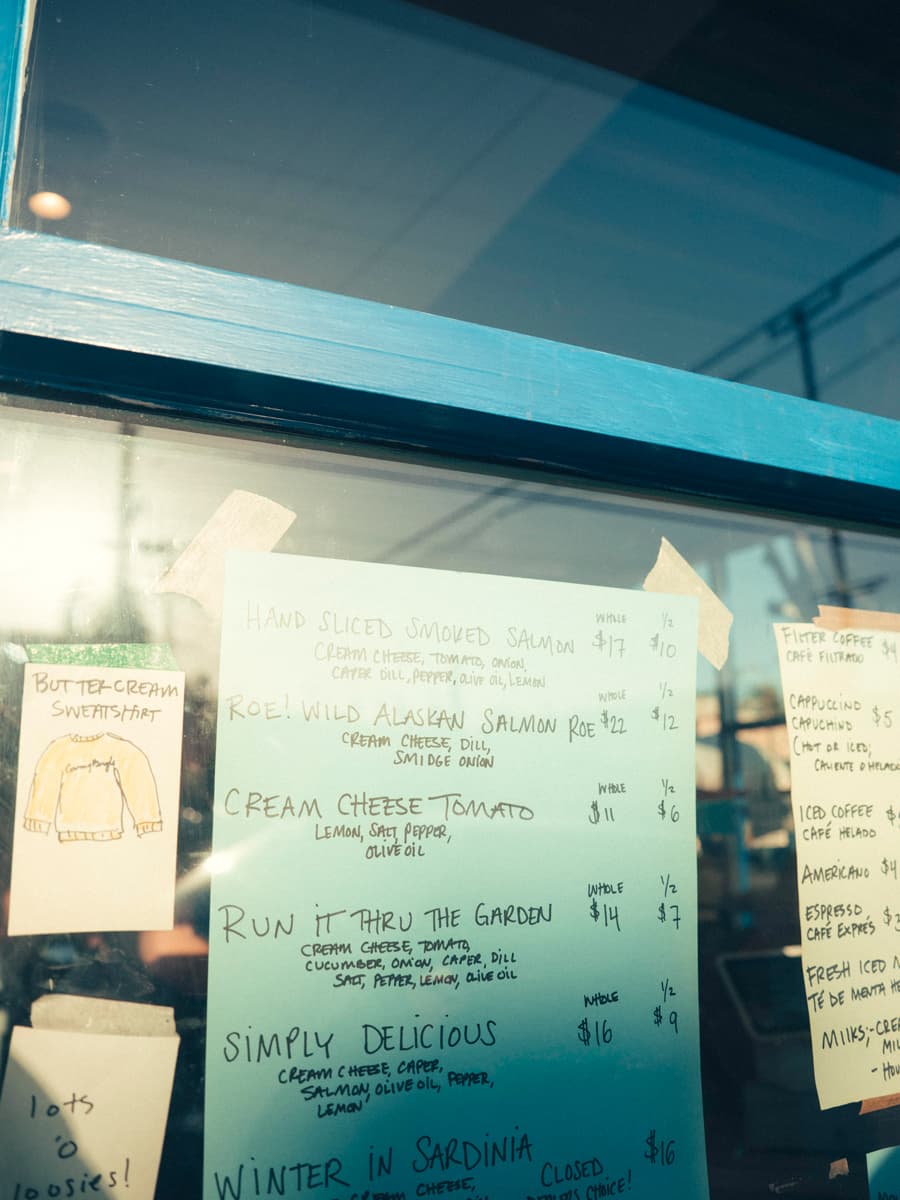 BUTTERCREAM
SWEATSHIRT
lots
'o
loosies!
WHOLE 1/2
HAND SLICED SMOKED SALMON $17 $10
CREAM CHEESE, TOMATO, ONION,
CAPER DILL, PEPPER, OLIVE OIL, LEMON
WHOLE 1/2
ROE! WILD ALASKAN SALMON ROE $22 $12
CREAM CHEESE, DILL,
SMIDGE ONION
WHOLE 1/2
CREAM CHEESE TOMATO $11 $6
LEMON, SALT, PEPPER,
OLIVE OIL
WHOLE 1/2
RUN IT THRU THE GARDEN $14 $7
CREAM CHEESE, TOMATO,
CUCUMBER, ONION, CAPER, DILL
SALT, PEPPER, LEMON, OLIVE OIL
WHOLE 1/2
SIMPLY DELICIOUS $16 $9
CREAM CHEESE, CAPER,
SALMON, OLIVE OIL, PEPPER,
LEMON
WINTER IN SARDINIA $16
CREAM CHEESE, CLOSED
CHOICE!
FILTER COFFEE $4
CAFÉ FILTRADO
CAPPUCCINO
CAPUCHINO $5
(HOT OR ICED;
CALIENTE O HELADO
ICED COFFEE
CAFÉ HELADO
AMERICANO $4
ESPRESSO
CAFÉ EXPRÉS
FRESH ICED
TÉ DE MENTA
MILKS;